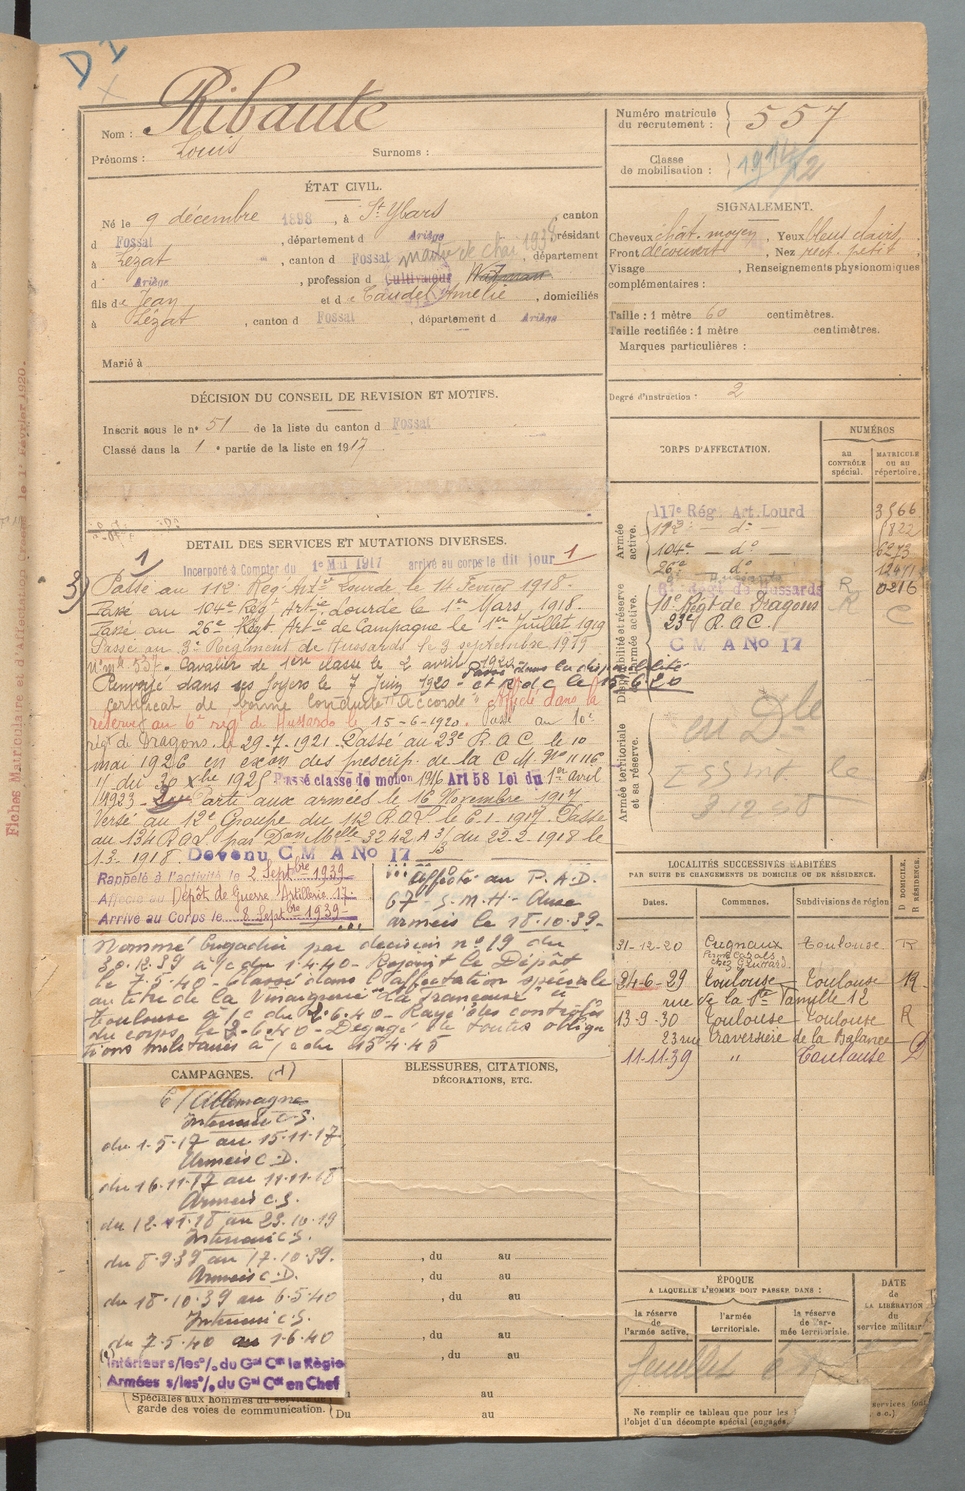 D I
Nom : Ribaute
Prénoms : Louis Surnoms :
Numéro matricule du recrutement : 557
Classe de mobilisation : 1914/12
ÉTAT CIVIL.
Né le 9 décembre 1898, à St Ybars, canton
d Fossat, département d Ariège résidant
à Lézat, canton d Fossat, département
d Ariège, profession d Cultivateur Wattman
fils de Jean et d e Caudet Amélie, domiciliés
à Lézat, canton d Fossat, département d Ariège
Marié à
SIGNALEMENT.
Cheveux chât. moyen, Yeux bleus clairs
Front découvert, Nez rect. petit
Visage , Renseignements physionomiques
complémentaires :
Taille : 1 mètre 60 centimètres.
Taille rectifiée : 1 mètre centimètres.
Marques particulières :
Degré d'instruction : 2
DÉCISION DU CONSEIL DE REVISION ET MOTIFS.
Inscrit sous le n° 51 de la liste du canton d Fossat
Classé dans la 1e partie de la liste en 1917
DETAIL DES SERVICES ET MUTATIONS DIVERSES.
1) Incorporé à Compter du 1er Mai 1917 arrivé au corps le dit jour 1
3) Passé au 112e Rég. Art ie Lourde le 14 Février 1918.
Passé au 104e Régt Art ie Lourde le 1er Mars 1918.
Passé au 26e Régt Art ie de Campagne le 1er Juillet 1919
Passé au 3e Régiment de Hussards le 3 septembre 1919
n° mle 537. Cavalier de 1ère classe le 2 avril 1920
Passé dans la disponibilité
Renvoyé dans ses foyers le 7 Juin 1920 et R d c le 15-6-20
Certificat de bonne conduite "Accordé" Affecté dans la
réserve au 6e régt de Hussards le 15-6-1920. Passé au 10e
régt de Dragons le 29-7-1921. Passé au 23e R.A.C. le 10
mai 1926 en exon des prescrip. de la C.M. N° 11116
1/ du 30 Xbre 1925 Passé classe de mobon 1916 Art 58 Loi du 1er avril
1923 - Parti aux armées le 16 Novembre 1917
Versé au 12e Groupe du 112 R.A.L. le 6-1-1917. Passé
au 134 R.A.L. par Don Melle 3242 A 3/ du 22-2-1918 le
1-3-1918. Devenu C M A No 17
Rappelé à l'activité le 2 Septbre 1939
Affecté au Dépôt de Guerre Artillerie 17
Arrivé au Corps le 8 Septbre 1939
Affecté au P.A.D.
67 - S.M.H - Aux
armées le 18.10.39-
Nommé Brigadier par décision n° 19 du
30.12.39 à/c du 1.4.40 - Rejoint le Dépôt
le 7.5.40 - Classé dans l'affectation spéciale
au titre de la "Vinaigrerie la Française" à
Toulouse à/c du 2.6.40 - Rayé des contrôles
du corps le 2.6.40 - Dégagé de toutes obliga
tions militaires à/c du 15.4.45
CORPS D'AFFECTATION.
NUMÉROS
au CONTRÔLE spécial.
MATRICULE ou au répertoire.
Armée active.
17e Rég. Art. Lourd 3566
112e - do - 1822
104e - do - 6273
26e do 12411
Disponibilité et réserve de l'armée active.
6e Régt de Hussards R 0216
10e Régt de Dragons R
23e R.A.C. C
C M A No 17
Armée territoriale et sa réserve.
en Dle
LOCALITÉS SUCCESSIVES HABITÉES
PAR SUITE DE CHANGEMENTS DE DOMICILE OU DE RÉSIDENCE.
Dates. Communes. Subdivisions de région D DOMICILE. R RÉSIDENCE.
31-12-20 Cugnaux Toulouse R
24-6-29 Toulouse Toulouse R
rue de la Ste Famille 12
13-9-30 Toulouse Toulouse R
23 rue Traversière de la Balance
11-11-39 " Toulouse D
CAMPAGNES. (1)
C/Allemagne
Intérieur C.S.
du 1-5-17 au 15-11-17
Armées C.D.
du 16-11-17 au 11-11-18
Armées C.S.
du 12-11-18 au 23.10.19
Intérieur C.S.
du 8-9-39 au 17-10-39.
Armées C.D.
du 18-10-39 au 6-5-40
Intérieur C.S.
du 7-5-40 au 1-6-40
(1) Intérieur s/les o/ du Gal Ct la Région
Armées s/les o/ du Gal Ct en Chef
Spéciales aux hommes du service de
garde des voies de communication. Du au
BLESSURES, CITATIONS,
DÉCORATIONS, ETC.
, du au
, du au
, du au
, du au
, du au
au
au
ÉPOQUE
A LAQUELLE L'HOMME DOIT PASSER DANS :
la réserve de l'armée active.
l'armée territoriale.
la réserve de l'armée territoriale.
DATE de LA LIBÉRATION du service militaire
feuillet
Ne remplir ce tableau que pour les
l'objet d'un décompte spécial (engagés,
Fiches Matriculaire et d'Affectation créées le 1er Février 1920.